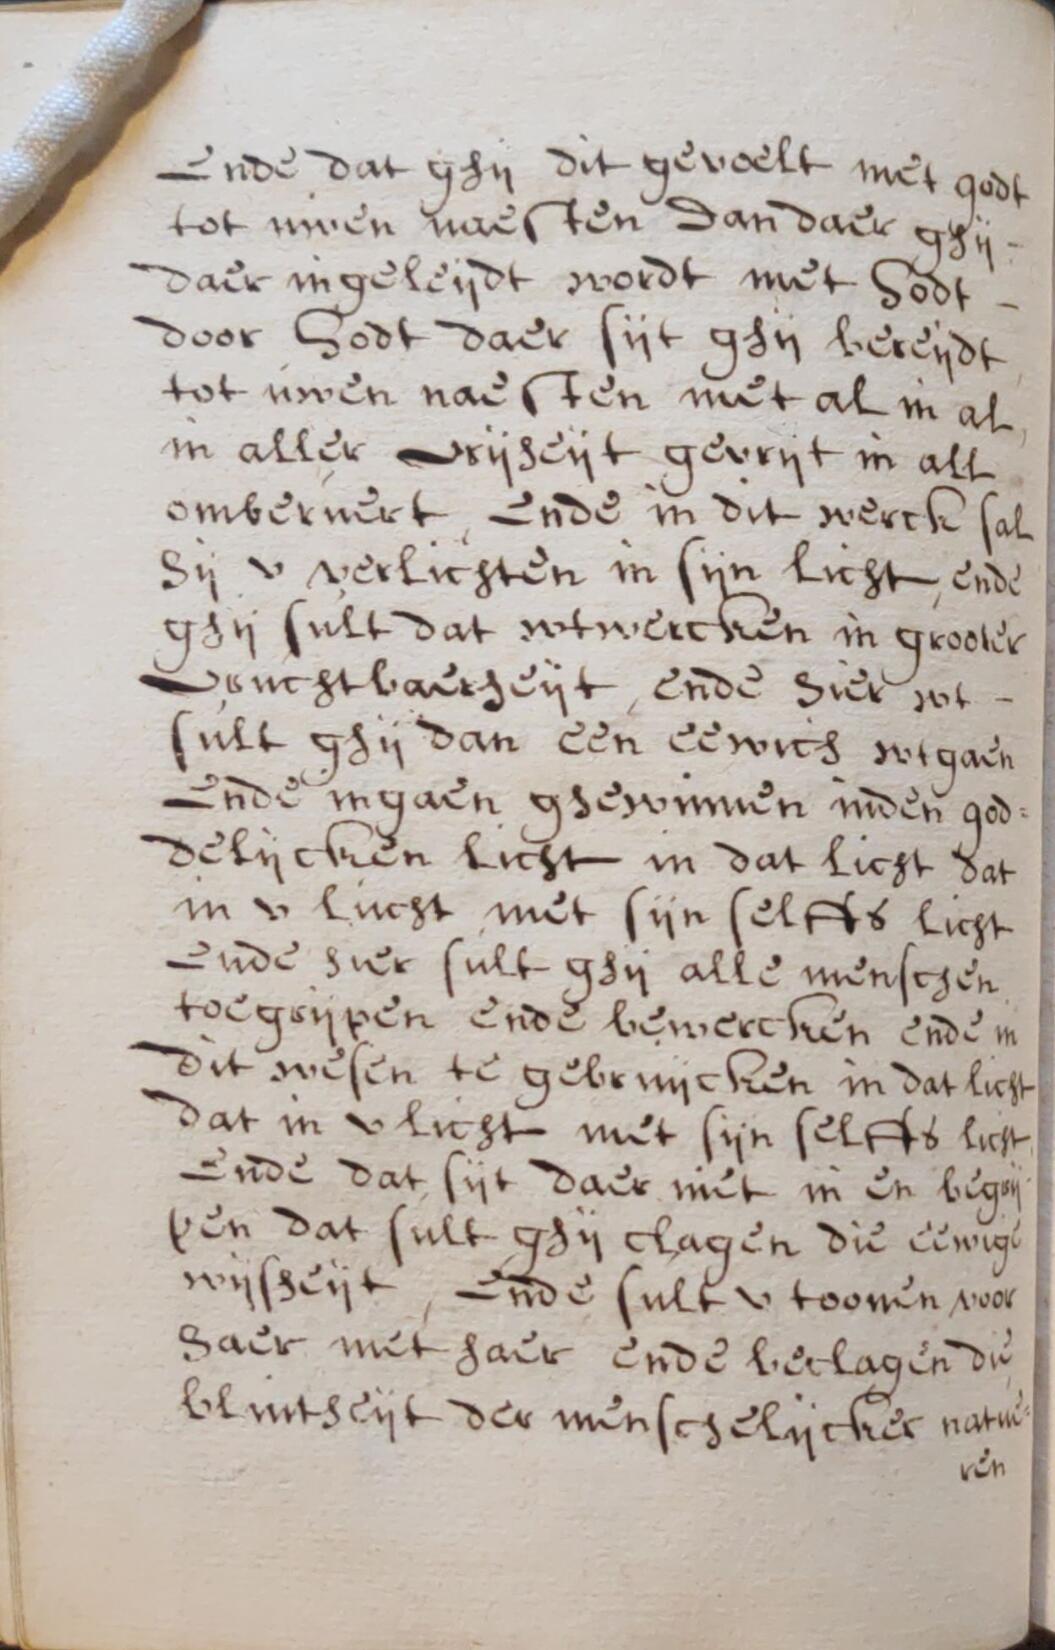 Ende dat ghij dit gevoelt met godt
tot uwen naesten Dan daer ghij -
daer ingeleijdt wordt met Godt -
door Godt daer sijt ghij bereijdt
tot uwen naesten met al in al,
in aller vrijheijt gevrijt in all
ombervert, Ende in dit werck sal
hij v verlichten in sijn licht, ende
ghij sult dat wtwercken in grooter
vruchtbaerheijt, ende hier wt -
sult ghij dan een eewich wtgaen
Ende ingaen ghewinnen inden god=
delijcken licht in dat licht dat
in v lucht met sijn selffs licht
Ende hier sult ghij alle menschen
toegrijpen ende bewercken ende in
dit wesen te gebruijcken in dat licht
dat in v licht met sijn selffs licht,
Ende dat sijt daer niet in en begrij-
pen dat sult ghij clagen die eewige
wijsheijt, Ende sult v toonen voor
haer met haer ende beclagen die
blintheijt der menschelijcker natue=
ren